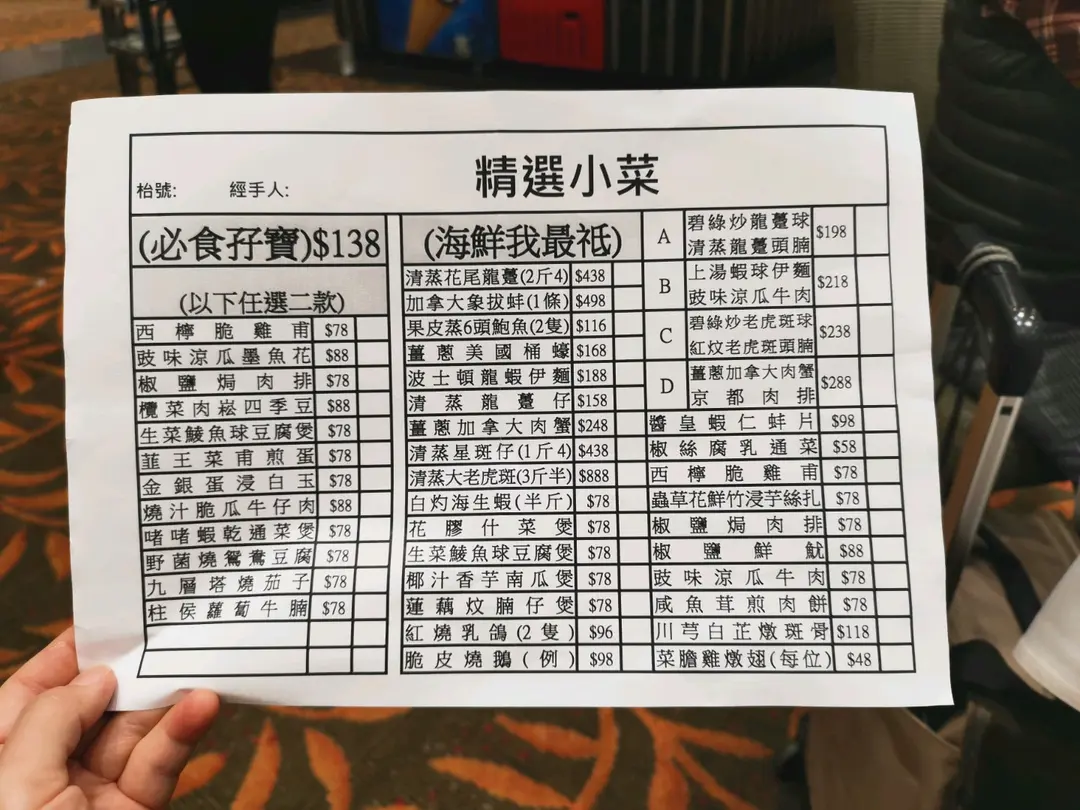 精選小菜
枱號: 經手人:
(必食孖寶)$138
(以下任選二款)
西檸脆雞甫 $78
豉味涼瓜墨魚花 $88
椒鹽焗肉排 $78
欖菜肉崧四季豆 $88
生菜鯪魚球豆腐煲 $78
韮王菜甫煎蛋 $78
金銀蛋浸白玉 $78
燒汁脆瓜牛仔肉 $88
啫啫蝦乾通菜煲 $78
野菌燒鴛鴦豆腐 $78
九層塔燒茄子 $78
柱侯蘿蔔牛腩 $78
(海鮮我最祗)
清蒸花尾龍躉(2斤4) $438
加拿大象拔蚌(1條) $498
果皮蒸6頭鮑魚(2隻) $116
薑蔥美國桶蠔 $168
波士頓龍蝦伊麵 $188
清蒸龍躉仔 $158
薑蔥加拿大肉蟹 $248
清蒸星斑仔(1斤4) $438
清蒸大老虎斑(3斤半) $888
白灼海生蝦(半斤) $78
花膠什菜煲 $78
生菜鯪魚球豆腐煲 $78
椰汁香芋南瓜煲 $78
蓮藕炆腩仔煲 $78
紅燒乳鴿(2隻) $96
脆皮燒鵝(例) $98
A 碧綠炒龍躉球 $198
清蒸龍躉頭腩
B 上湯蝦球伊麵 $218
豉味涼瓜牛肉
C 碧綠炒老虎斑球 $238
紅炆老虎斑頭腩
D 薑蔥加拿大肉蟹 $288
京都肉排
醬皇蝦仁蚌片 $98
椒絲腐乳通菜 $58
西檸脆雞甫 $78
蟲草花鮮竹浸芋絲扎 $78
椒鹽焗肉排 $78
椒鹽鮮魷 $88
豉味涼瓜牛肉 $78
咸魚茸煎肉餅 $78
川芎白芷燉斑骨 $118
菜膽雞燉翅(每位) $48